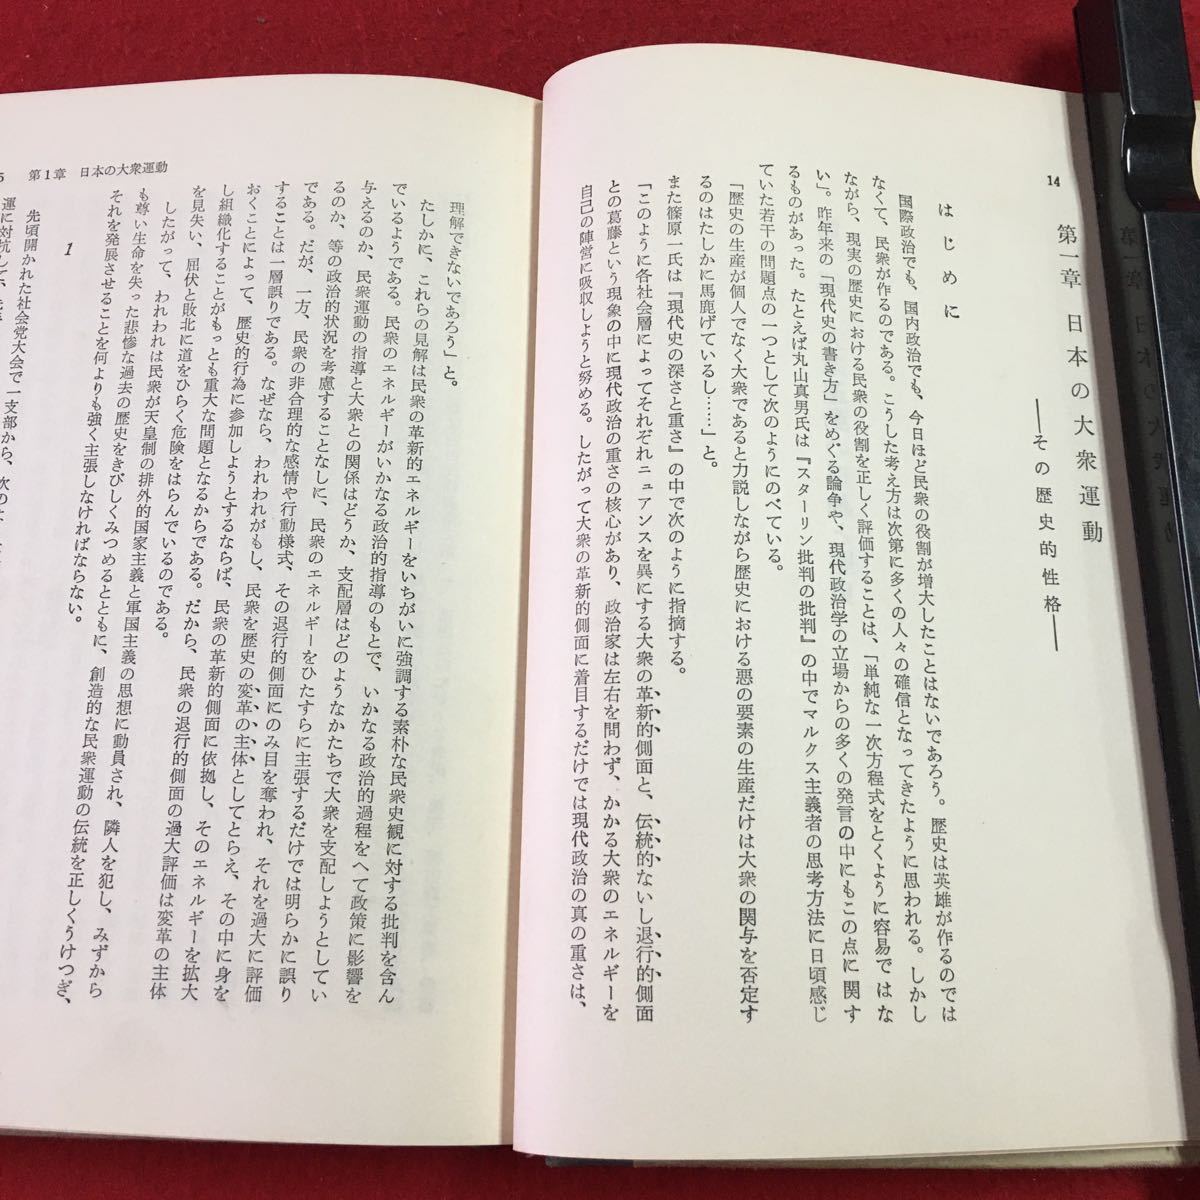 14
第一章　日本の大衆運動
――その歴史的性格――
はじめに
国際政治でも、国内政治でも、今日ほど民衆の役割が増大したことはないであろう。歴史は英雄が作るのでは
なくて、民衆が作るのである。こうした考え方は次第に多くの人々の確信となってきたように思われる。しかし
ながら、現実の歴史における民衆の役割を正しく評価することは、「単純な一次方程式をとくように容易ではな
い」。昨年来の「現代史の書き方」をめぐる論争や、現代政治学の立場からの多くの発言の中にもこの点に関す
るものがあった。たとえば丸山真男氏は『スターリン批判の批判』の中でマルクス主義者の思考方法に日頃感じ
ていた若干の問題点の一つとして次のようにのべている。
「歴史の生産が個人でなく大衆であると力説しながら歴史における悪の要素の生産だけは大衆の関与を否定す
るのはたしかに馬鹿げているし……」と。
また篠原一氏は『現代史の深さと重さ』の中で次のように指摘する。
「このように各社会層によってそれぞれニュアンスを異にする大衆の革新的側面と、伝統的ないし退行的側面
との葛藤という現象の中に現代政治の重さの核心があり、政治家は左右を問わず、かかる大衆のエネルギーを
自己の陣営に吸収しようと努める。したがって大衆の革新的側面に着目するだけでは現代政治の真の重さは、
5　第1章　日本の大衆運動
理解できないであろう」と。
たしかに、これらの見解は民衆の革新的エネルギーをいちがいに強調する素朴な民衆史観に対する批判を含ん
でいるようである。民衆のエネルギーがいかなる政治的指導のもとで、いかなる政治的過程をへて政策に影響を
与えるのか、民衆運動の指導と大衆との関係はどうか、支配層はどのようなかたちで大衆を支配しようとしてい
るのか、等の政治的状況を考慮することなしに、民衆のエネルギーをひたすらに主張するだけでは明らかに誤り
である。だが、一方、民衆の非合理的な感情や行動様式、その退行的側面にのみ目を奪われ、それを過大に評価
することは一層誤りである。なぜなら、われわれがもし、民衆を歴史の変革の主体としてとらえ、その中に身を
おくことによって、歴史的行為に参加しようとするならば、民衆の革新的側面に依拠し、そのエネルギーを拡大
し組織化することがもっとも重大な問題となるからである。だから、民衆の退行的側面の過大評価は変革の主体
を見失い、屈伏と敗北に道をひらく危険をはらんでいるのである。
したがって、われわれは民衆が天皇制の排外的国家主義と軍国主義の思想に動員され、隣人を犯し、みずから
も尊い生命を失った悲惨な過去の歴史をきびしくみつめるとともに、創造的な民衆運動の伝統を正しくうけつぎ、
それを発展させることを何よりも強く主張しなければならない。
1
先頃開かれた社会党大会で一支部から、次の
運に対抗して、